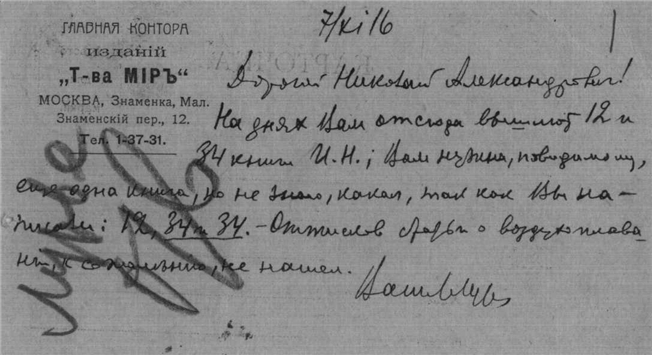 ГЛАВНАЯ КОНТОРА
изданій
„Т-ва МІРЪ“
МОСКВА, Знаменка, Мал.
Знаменскій пер., 12.
Тел. 1-37-31.
7/XI 16
Дорогой Николай Александрович!
На днях Вам отсюда вышлют 12 и
34 книги И.Н.; Вам нужна, повидимому,
еще одна книга, но не знаю, какая, так как Вы на-
писали: 12, 34 и 34. – Оттисков статьи о воздухоплава-
нии, к сожалению, не нашел.
Ваш